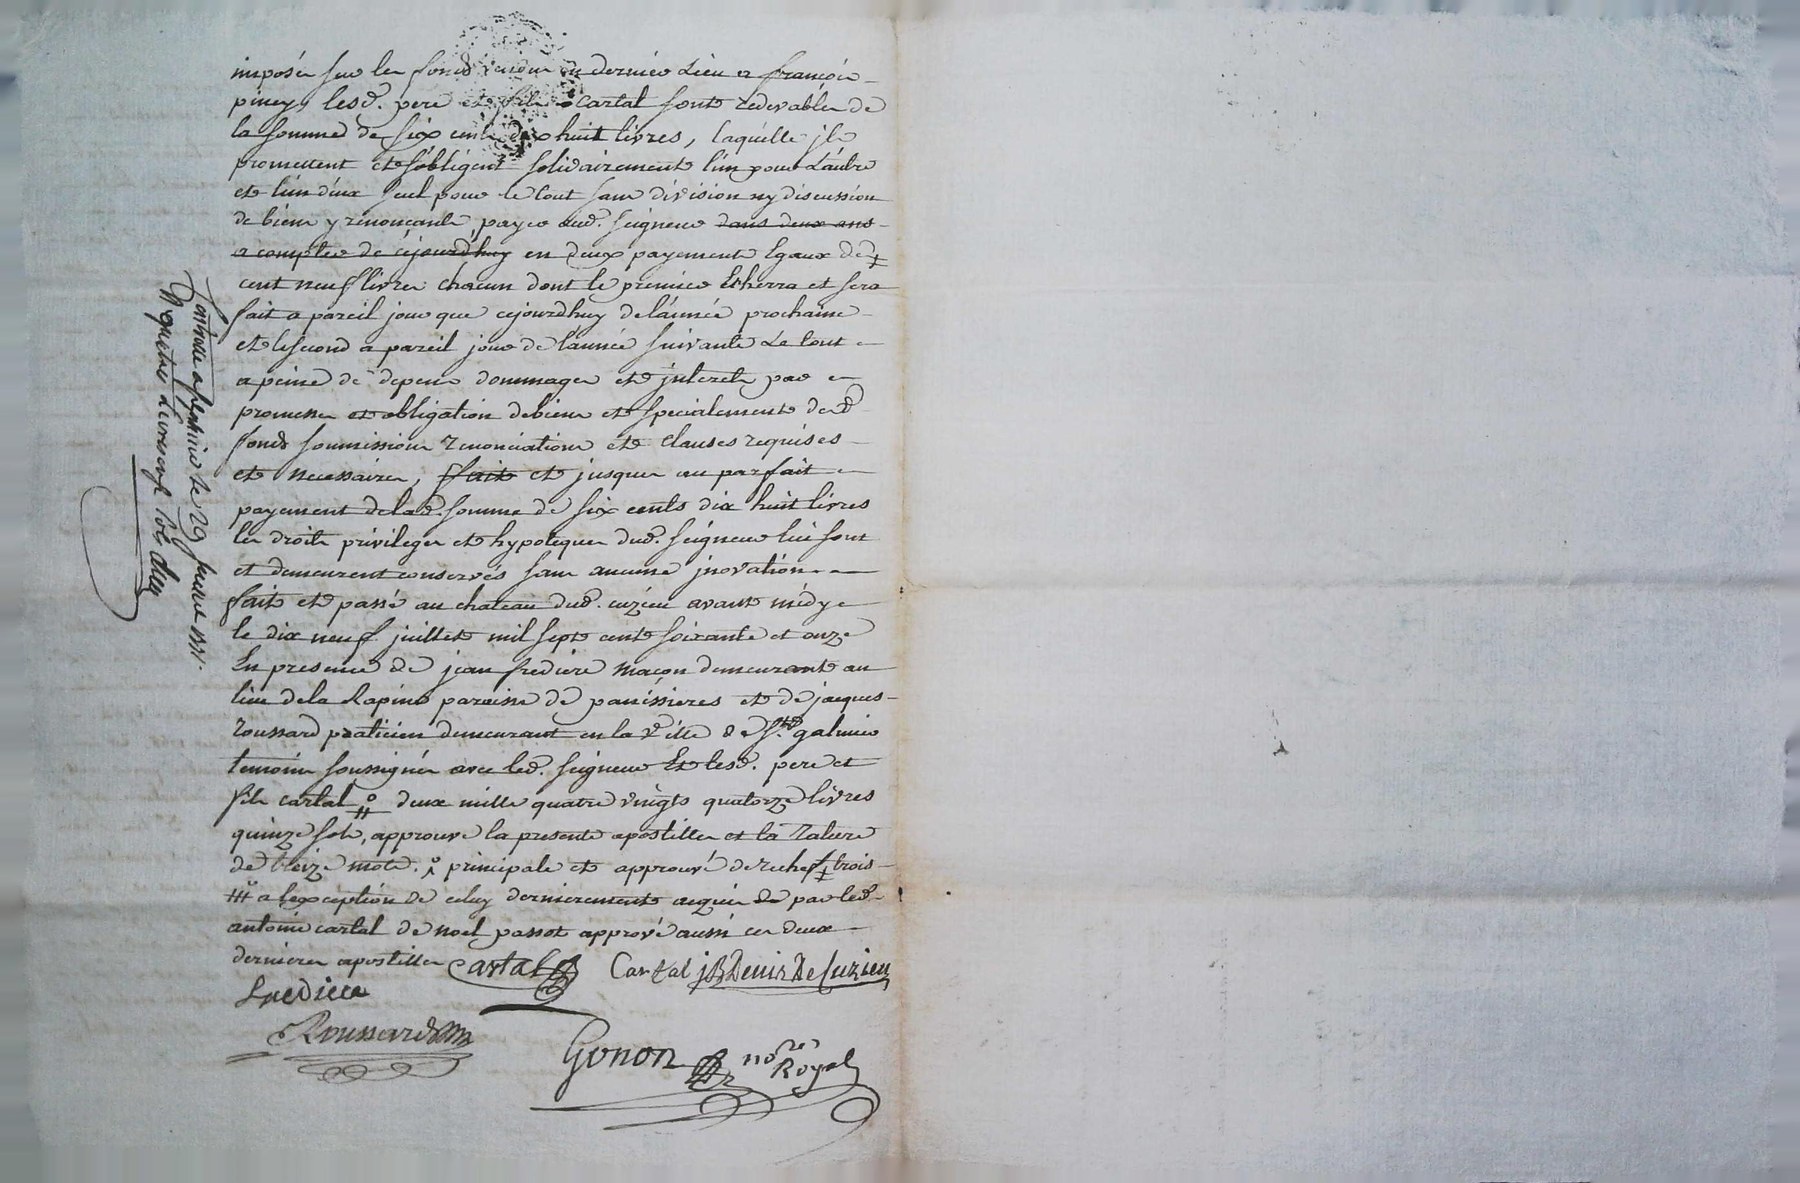 imposés sur les fonds vendus en dernier Lieu a françois
piney, lesd. pere et fils cartal sont redevables de
la somme de six cents dix huit livres, laquelle ils
promettent et s'obligent solidairement l'un pour L'autre
et l'un d'eux seul pour le tout sans division ny discussion
de biens y renonçants, payer aud. seigneur dans deux ans
a compter de cejourd'huy en deux payements Egaux de
cent neuf livres chacun dont le premier Echerra et sera
fait a pareil jour que cejourdhuy de l'année prochaine
et le second a pareil jour de l'année suivante Le tout
a peine de depens dommages et jnterets par
promesse et obligation de biens et specialement desd.
fonds soumissions renonciations et Clauses requises
et necessaires, fait et jusques au parfait
payement de lad. somme de six cents dix huit livres
les droits privileges et hypoteques dud. seigneur lui sont
et demeurent conservés sans aucune jnovation
fait et passé au chateau dud. cuzieu avant midy
le dix neuf juillet mil sept cent soixante et onze
En presence de jean fredière maçon demeurant au
lieu de la Rapine paroisse de panissieres et de jacques
roussard praticien demeurant en la ville de St. galmier
temoins soussignés avec led. seigneur Et lesd. pere et
fils cartal deux mille quatre vingts quatorze livres
quinze sols, approuvé la presente apostille et la Rature
de treize mots. principale et approuvé derechef trois
a l'exception de celuy dernierement acquis de par led.
antoine cartal de noel passot apprové aussi ces deux
dernieres apostilles Cartal Cartal jB Denis De Cuzieu
fredière
Roussard
Gonon nore Royal
le 29 juillet 1771.